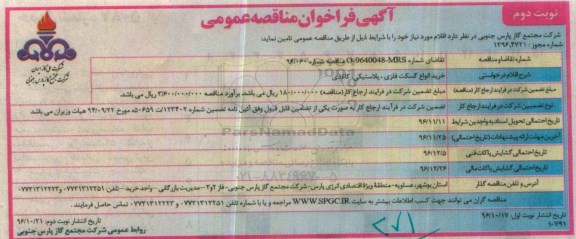 نوبت دوم
آگهی فراخوان مناقصه عمومی
شرکت ملی گاز ایران
شرکت مجتمع گاز پارس جنوبی
شرکت مجتمع گاز پارس جنوبی در نظر دارد اقلام مورد نیاز خود را با شرایط ذیل از طریق مناقصه عمومی تامین نماید:
شماره مجوز: ۱۳۹۶.۴۷۲۱
شماره تقاضا و مناقصه
تقاضای شماره O-9640048-MRS مناقصه شماره ۹۶/۰۶۰
شرح اقلام درخواستی
خرید انواع گسکت فلزی ، پلاستیکی ، کاغذی
مبلغ تضمین شرکت در فرایند ارجاع کار (مناقصه)
مبلغ تضمین شرکت در فرآیند ارجاع کار (مناقصه) ۱۸۰/۰۰۰/۰۰۰ ریال می باشد. برآورد مناقصه ۳/۶۰۰/۰۰۰/۰۰۰ ریال می باشد.
نوع تضمین شرکت در فرایند ارجاع کار
تضمین شرکت در فرآیند ارجاع کار به صورت یکی از تضامین قابل قبول وفق آئین نامه تضمین شماره ۱۲۳۴۰۲/ت۵۰۶۵۹ه مورخ ۹۴/۰۹/۲۲ هیات وزیران می باشد
تاریخ احتمالی تحویل اسناد به واجدین شرایط
۹۶/۱۱/۱۱
آخرین مهلت ارائه پیشنهادات (تاریخ احتمالی)
۹۶/۱۱/۲۵
تاریخ احتمالی گشایش پاکات فنی
۹۶/۱۲/۵
تاریخ احتمالی گشایش پاکات مالی
۹۶/۱۲/۲۶
آدرس و تلفن مناقصه گذار
استان بوشهر، عسلویه- منطقه ویژه اقتصادی انرژی پارس- شرکت مجتمع گاز پارس جنوبی- فاز ۲و۳- مدیریت بازرگانی - واحد خرید - تلفن ۰۷۷۳۱۳۱۲۲۵۱ و ۰۷۷۳۱۳۱۲۲۲۳
مناقصه گران می توانند جهت کسب اطلاعات بیشتر به سایت WWW.SPGC.IR مراجعه و یا با شماره تلفن ۰۷۷۳۱۳۱۲۲۵۱ و ۰۷۷۳۱۳۱۲۲۲۳ تماس حاصل فرمایند.
تاریخ انتشار نوبت اول: ۹۶/۱۰/۱۷
تاریخ انتشار نوبت دوم: ۹۶/۱۰/۲۱
۱۰۷۹۱
روابط عمومی شرکت مجتمع گاز پارس جنوبی
ParsNamadData